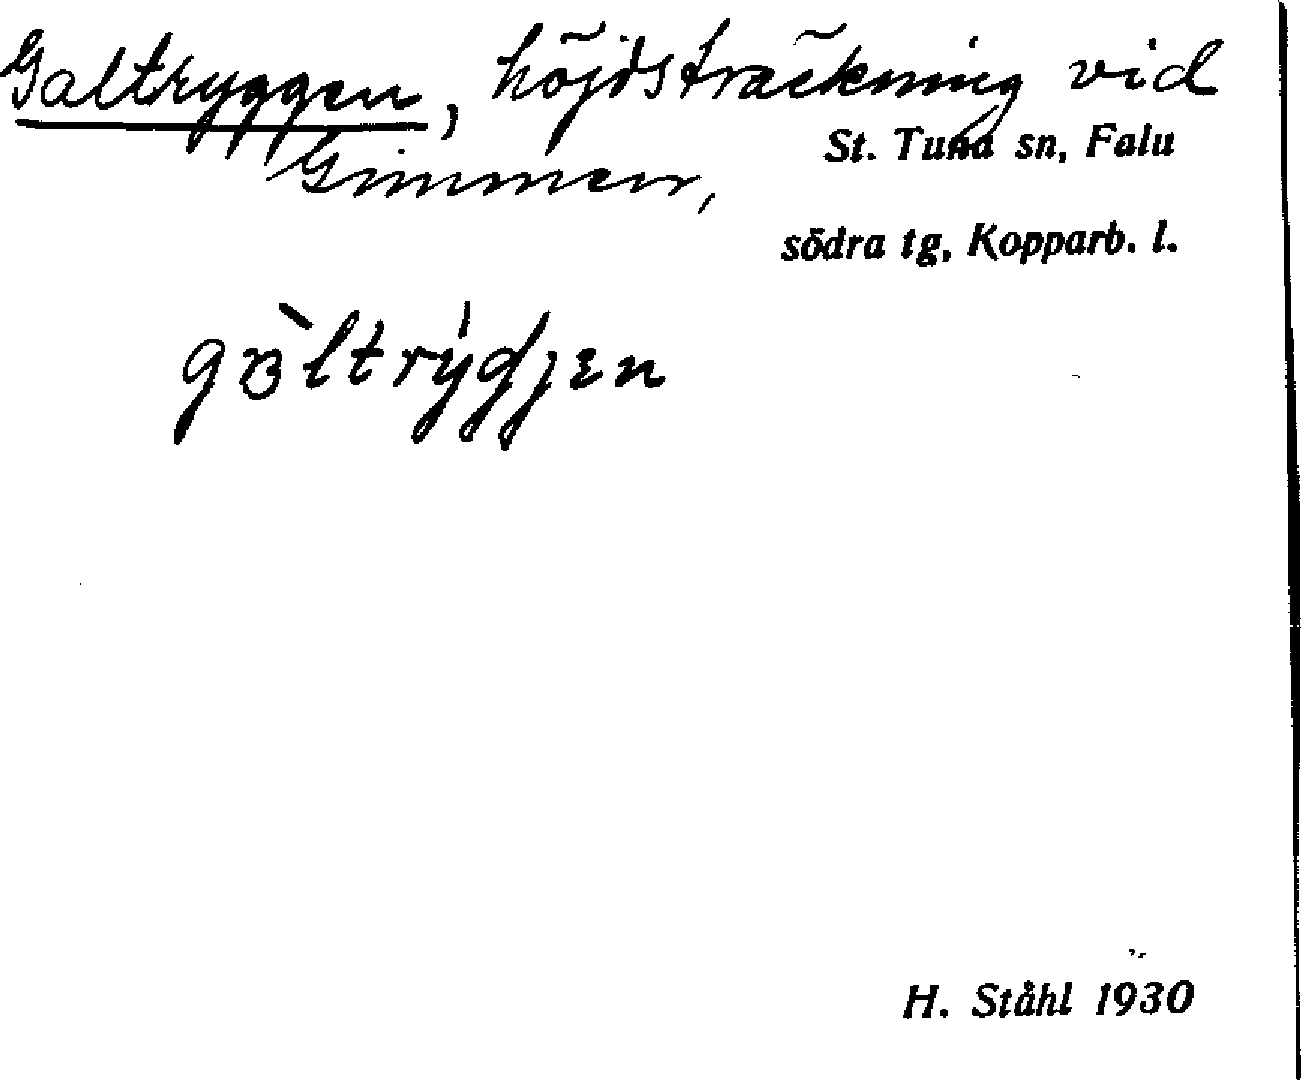 Galtryggen, höjdsträckning vid
Gimmen,
St. Tuna sn, Falu
södra tg, Kopparb. l.
H. Ståhl 1930